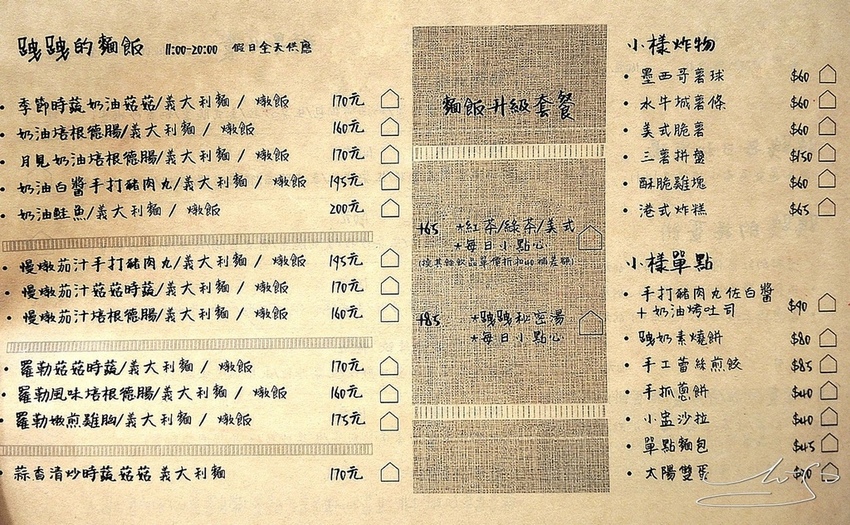 跩跩的麵飯 11:00-20:00 假日全天供應
季節時蔬奶油菇菇/義大利麵 / 燉飯 170元
奶油培根德腸/義大利麵 / 燉飯 160元
月見奶油培根德腸/義大利麵 / 燉飯 170元
奶油白醬手打豬肉丸/義大利麵 / 燉飯 195元
奶油鮭魚/義大利麵 / 燉飯 200元
慢燉茄汁手打豬肉丸/義大利麵 / 燉飯 195元
慢燉茄汁菇菇時蔬/義大利麵 / 燉飯 170元
慢燉茄汁培根德腸/義大利麵 / 燉飯 160元
羅勒菇菇時蔬/義大利麵 / 燉飯 170元
羅勒風味培根德腸/義大利麵 / 燉飯 160元
羅勒嫩煎雞胸/義大利麵 / 燉飯 175元
蒜香清炒時蔬菇菇 義大利麵 170元
麵飯升級套餐
+65 *紅茶/綠茶/美式
*每日小點心
(換其餘飲品單價折和40補差額)
+85 *跩跩秘密湯
*每日小點心
小樣炸物
墨西哥薯球 $60
水牛城薯條 $60
美式脆薯 $60
三薯拼盤 $150
酥脆雞塊 $60
港式炸糕 $65
小樣單點
手打豬肉丸佐白醬
+奶油烤吐司 $90
跩奶素燒餅 $80
手工蕾絲煎餃 $85
手抓蔥餅 $40
小盅沙拉 $40
單點麵包 $45
太陽雙蛋